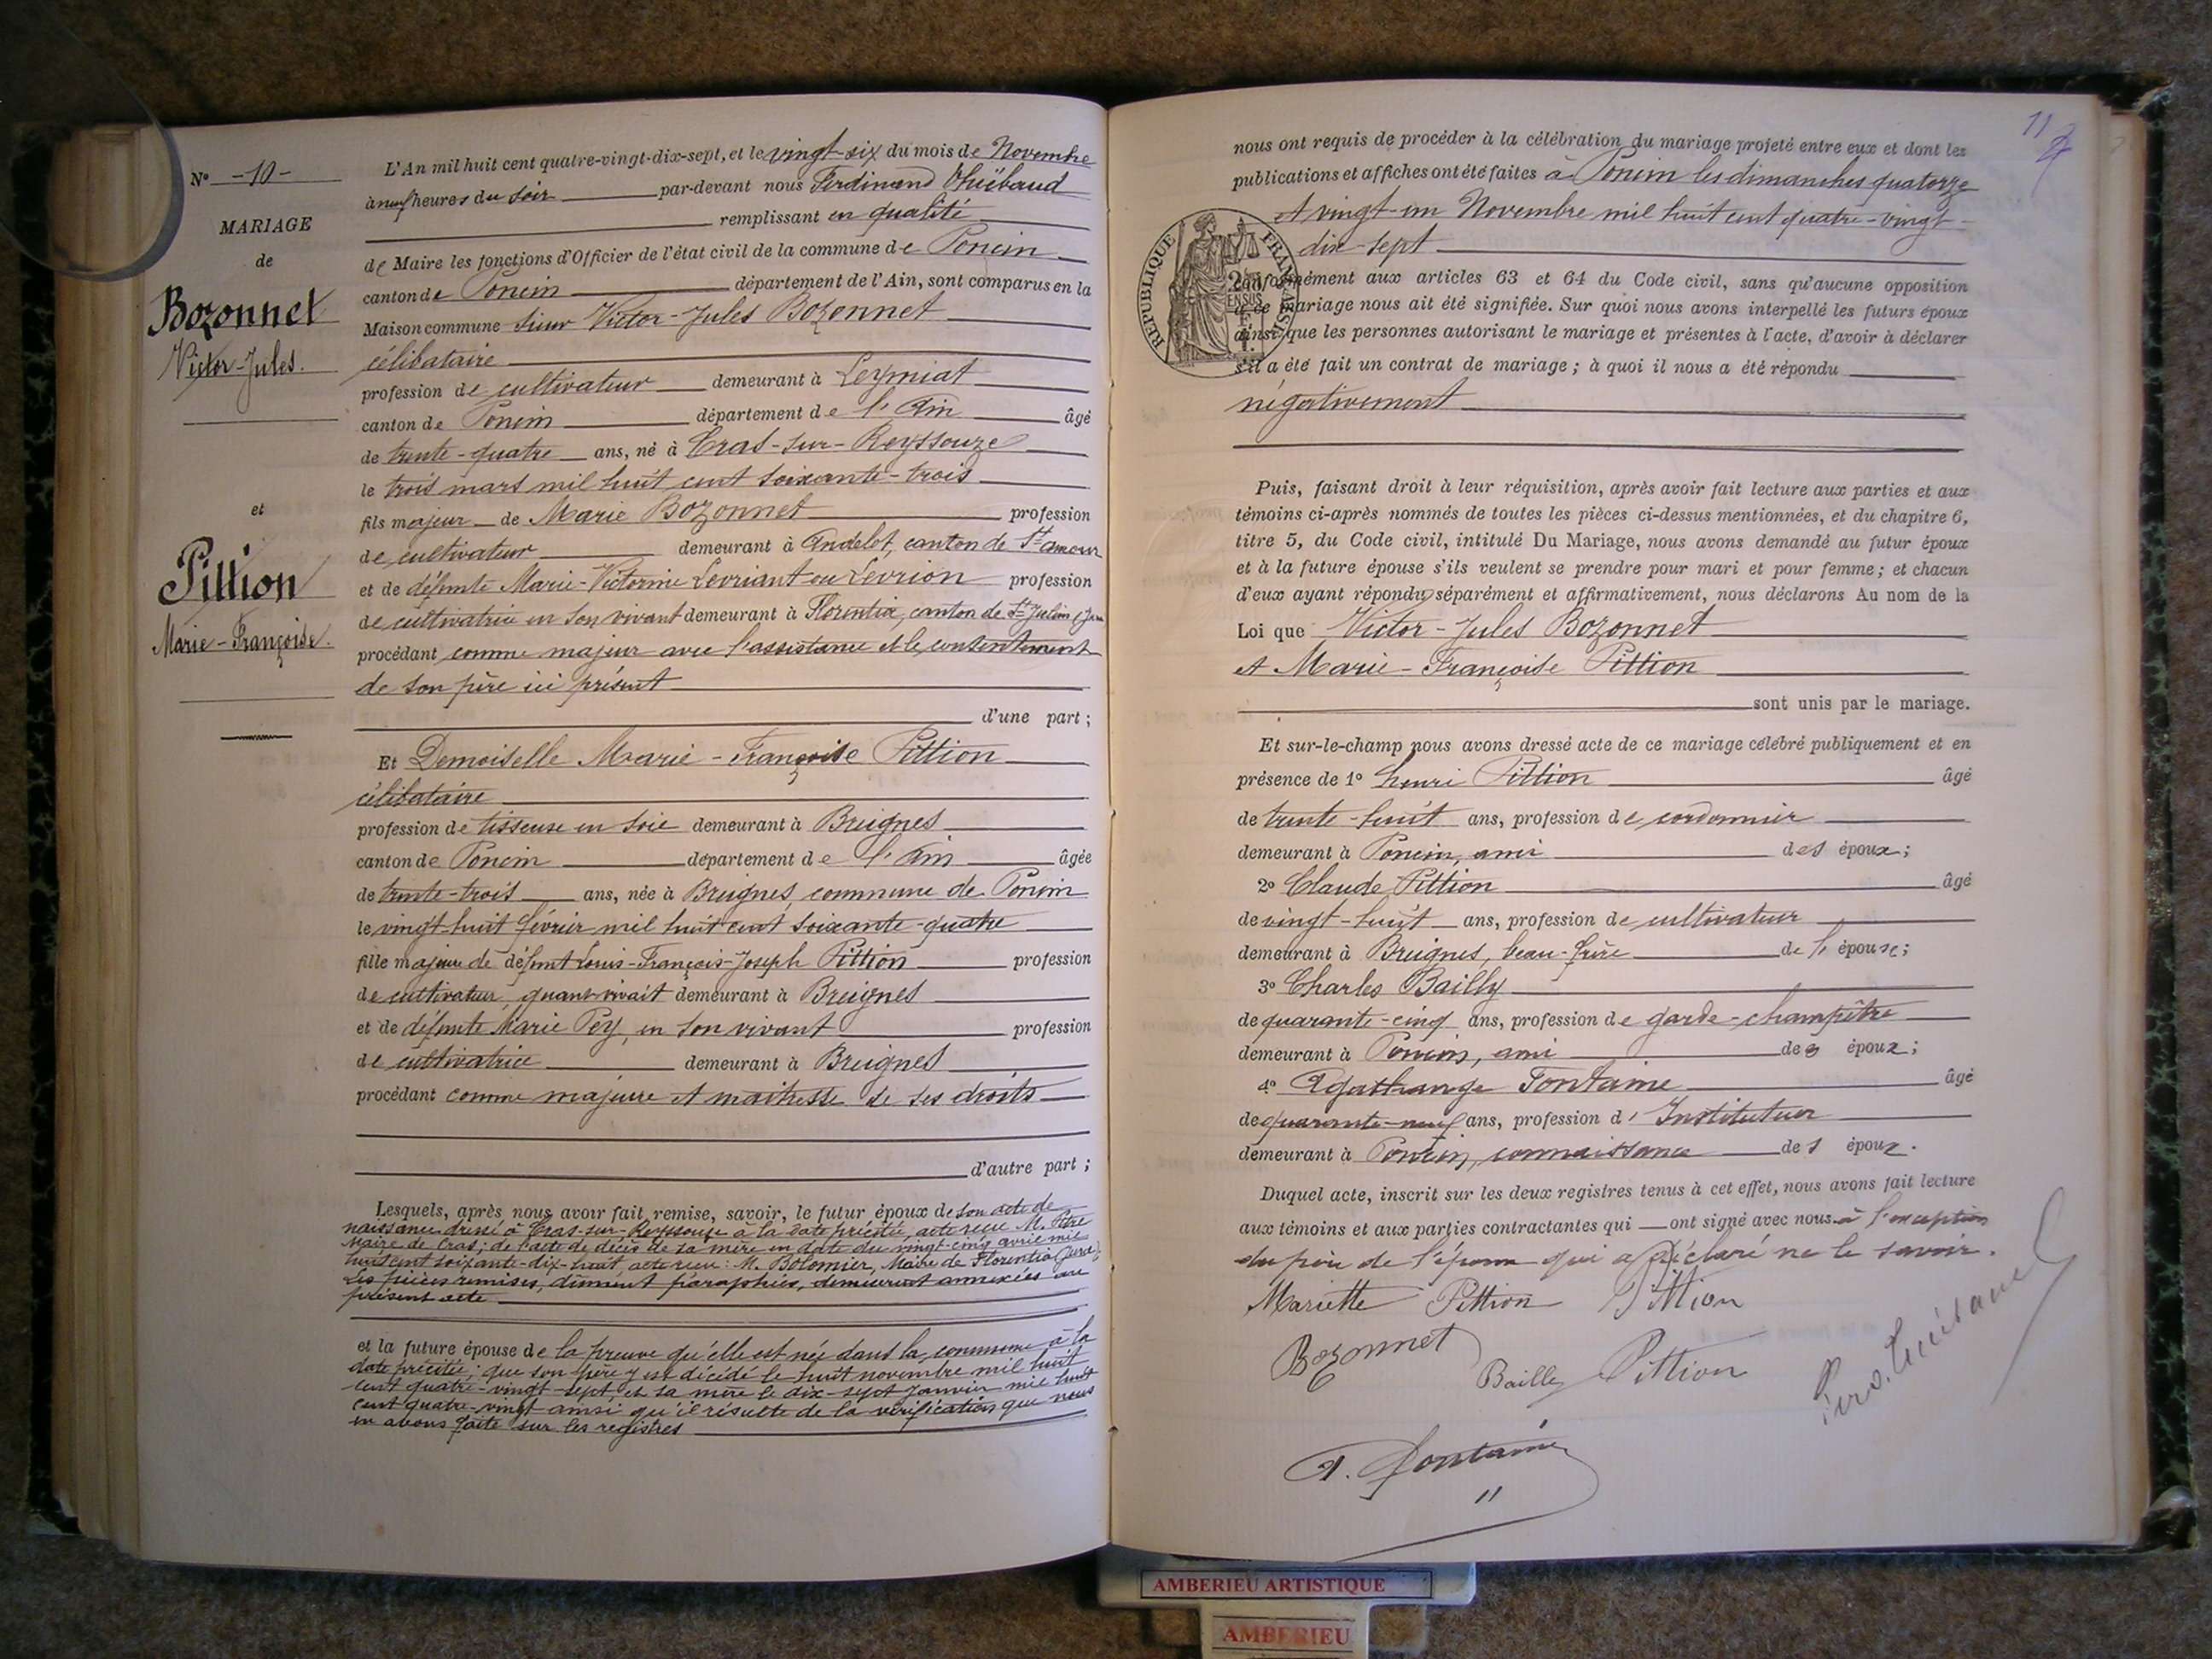 N° - 10 -
MARIAGE
de
Bozonnet
Victor-Jules.
et
Pittion
Marie-Françoise.
L'An mil huit cent quatre-vingt-dix-sept, et le vingt-six du mois de Novembre
à neuf heures du soir par-devant nous Ferdinand Thiébaud
remplissant en qualité
de Maire les fonctions d'Officier de l'état civil de la commune de Poncin
canton de Poncin département de l'Ain, sont comparus en la
Maison commune sieur Victor-Jules Bozonnet
célibataire
profession de cultivateur demeurant à Leymiat
canton de Poncin département de l'Ain âgé
de trente-quatre ans, né à Cras-sur-Reyssouze
le trois mars mil huit cent soixante-trois
fils majeur de Marie Bozonnet profession
de cultivateur demeurant à Andelot, canton de St amour
et de défunte Marie-Victorine Levriant ou Levrion profession
de cultivatrice en son vivant demeurant à Florentia, canton de St Julien (Jura
procédant comme majeur avec l'assistance et le consentement
de son père ici présent
d'une part ;
Et Demoiselle Marie-Françoise Pittion
célibataire
profession de tisseuse en soie demeurant à Breignes
canton de Poncin département de l'Ain âgée
de trente-trois ans, née à Breignes, commune de Poncin
le vingt-huit février mil huit cent soixante-quatre
fille majeure de défunt Louis-François-Joseph Pittion profession
de cultivateur quant vivait demeurant à Breignes
et de défunte Marie Pey, en son vivant profession
de cultivatrice demeurant à Breignes
procédant comme majeure et maitresse de ses droits
d'autre part ;
Lesquels, après nous avoir fait remise, savoir, le futur époux de son acte de
naissance dressé à Cras-sur-Reyssouze à la date précitée, acte reçu M. Pitre
Maire de Cras ; de l'acte de décès de sa mère en date du vingt-cinq avril mil
huit cent soixante-dix-huit, acte reçu : M. Bolomier, Maire de Florentia (Jura).
Les pièces remises, dûment paraphées, demeurent annexées au
présent acte
et la future épouse de la preuve qu'elle est née dans la commune à la
date précitée ; que son père y est décédé le huit novembre mil huit
cent quatre-vingt-sept, et sa mère le dix-sept janvier mil huit
cent quatre-vingt ainsi qu'il résulte de la vérification que nous
en avons faite sur les registres
11
nous ont requis de procéder à la célébration du mariage projeté entre eux et dont les
publications et affiches ont été faites à Poncin les dimanches quatorze
et vingt-un Novembre mil huit cent quatre-vingt-
dix-sept
RÉPUBLIQUE FRANÇAISE
conformément aux articles 63 et 64 du Code civil, sans qu'aucune opposition
à ce mariage nous ait été signifiée. Sur quoi nous avons interpellé les futurs époux
ainsi que les personnes autorisant le mariage et présentes à l'acte, d'avoir à déclarer
s'il a été fait un contrat de mariage ; à quoi il nous a été répondu
négativement
Puis, faisant droit à leur réquisition, après avoir fait lecture aux parties et aux
témoins ci-après nommés de toutes les pièces ci-dessus mentionnées, et du chapitre 6,
titre 5, du Code civil, intitulé Du Mariage, nous avons demandé au futur époux
et à la future épouse s'ils veulent se prendre pour mari et pour femme ; et chacun
d'eux ayant répondu séparément et affirmativement, nous déclarons Au nom de la
Loi que Victor-Jules Bozonnet
et Marie-Françoise Pittion
sont unis par le mariage.
Et sur-le-champ nous avons dressé acte de ce mariage célébré publiquement et en
présence de 1° henri Pittion âgé
de trente-huit ans, profession de cordonnier
demeurant à Poncin, ami des époux ;
2° Claude Pittion âgé
de vingt-huit ans, profession de cultivateur
demeurant à Breignes, beau-frère de l'épouse ;
3° Charles Bailly
de quarante-cinq ans, profession de garde-champêtre
demeurant à Poncin, ami des époux ;
4° Agathange Fontaine âgé
de quarante-neuf ans, profession d'Instituteur
demeurant à Poncin, connaissance des époux.
Duquel acte, inscrit sur les deux registres tenus à cet effet, nous avons fait lecture
aux témoins et aux parties contractantes qui ont signé avec nous à l'exception
du père de l'époux qui a déclaré ne le savoir.
Mariette Pittion Pittion
Bozonnet
Bailly Pittion
A. Fontaine
AMBERIEU ARTISTIQUE
AMBERIEU